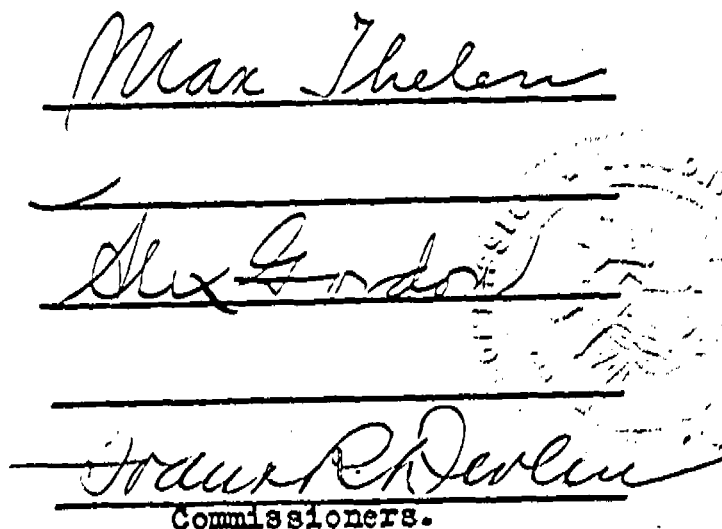 Max Thelen
Alex Gordon
Frank R. Devlin
Commissioners.